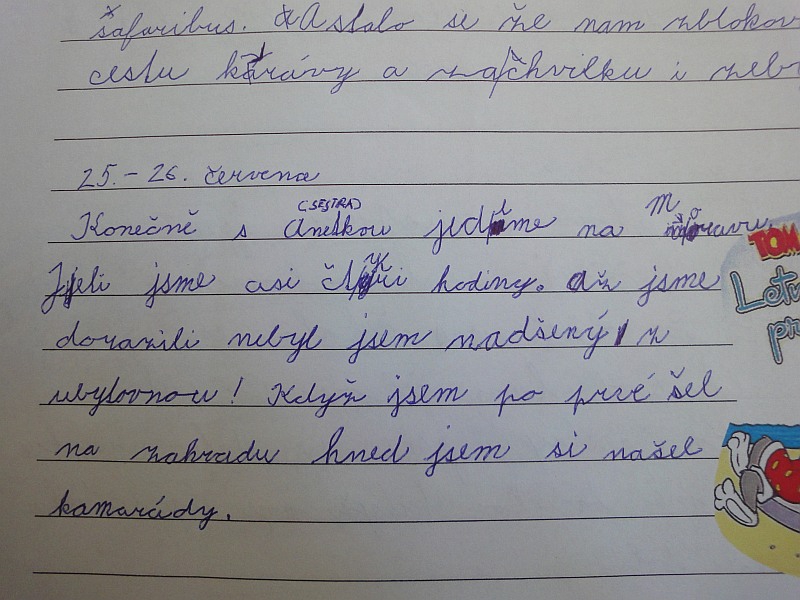 šafaribus. A stalo se že nam zblokov
cestu krávy a za chvilku i zeb
25.-26. června
(SESTRA)
Konečně s Aneškou jedeme na Moravu.
Jeli jsme asi čtyři hodiny. Až jsme
dorazili nebyl jsem nadšený z
ubylovnou! Když jsem po prvé šel
na zahradu hned jsem si našel
kamarády.
TOM
Letn
pr